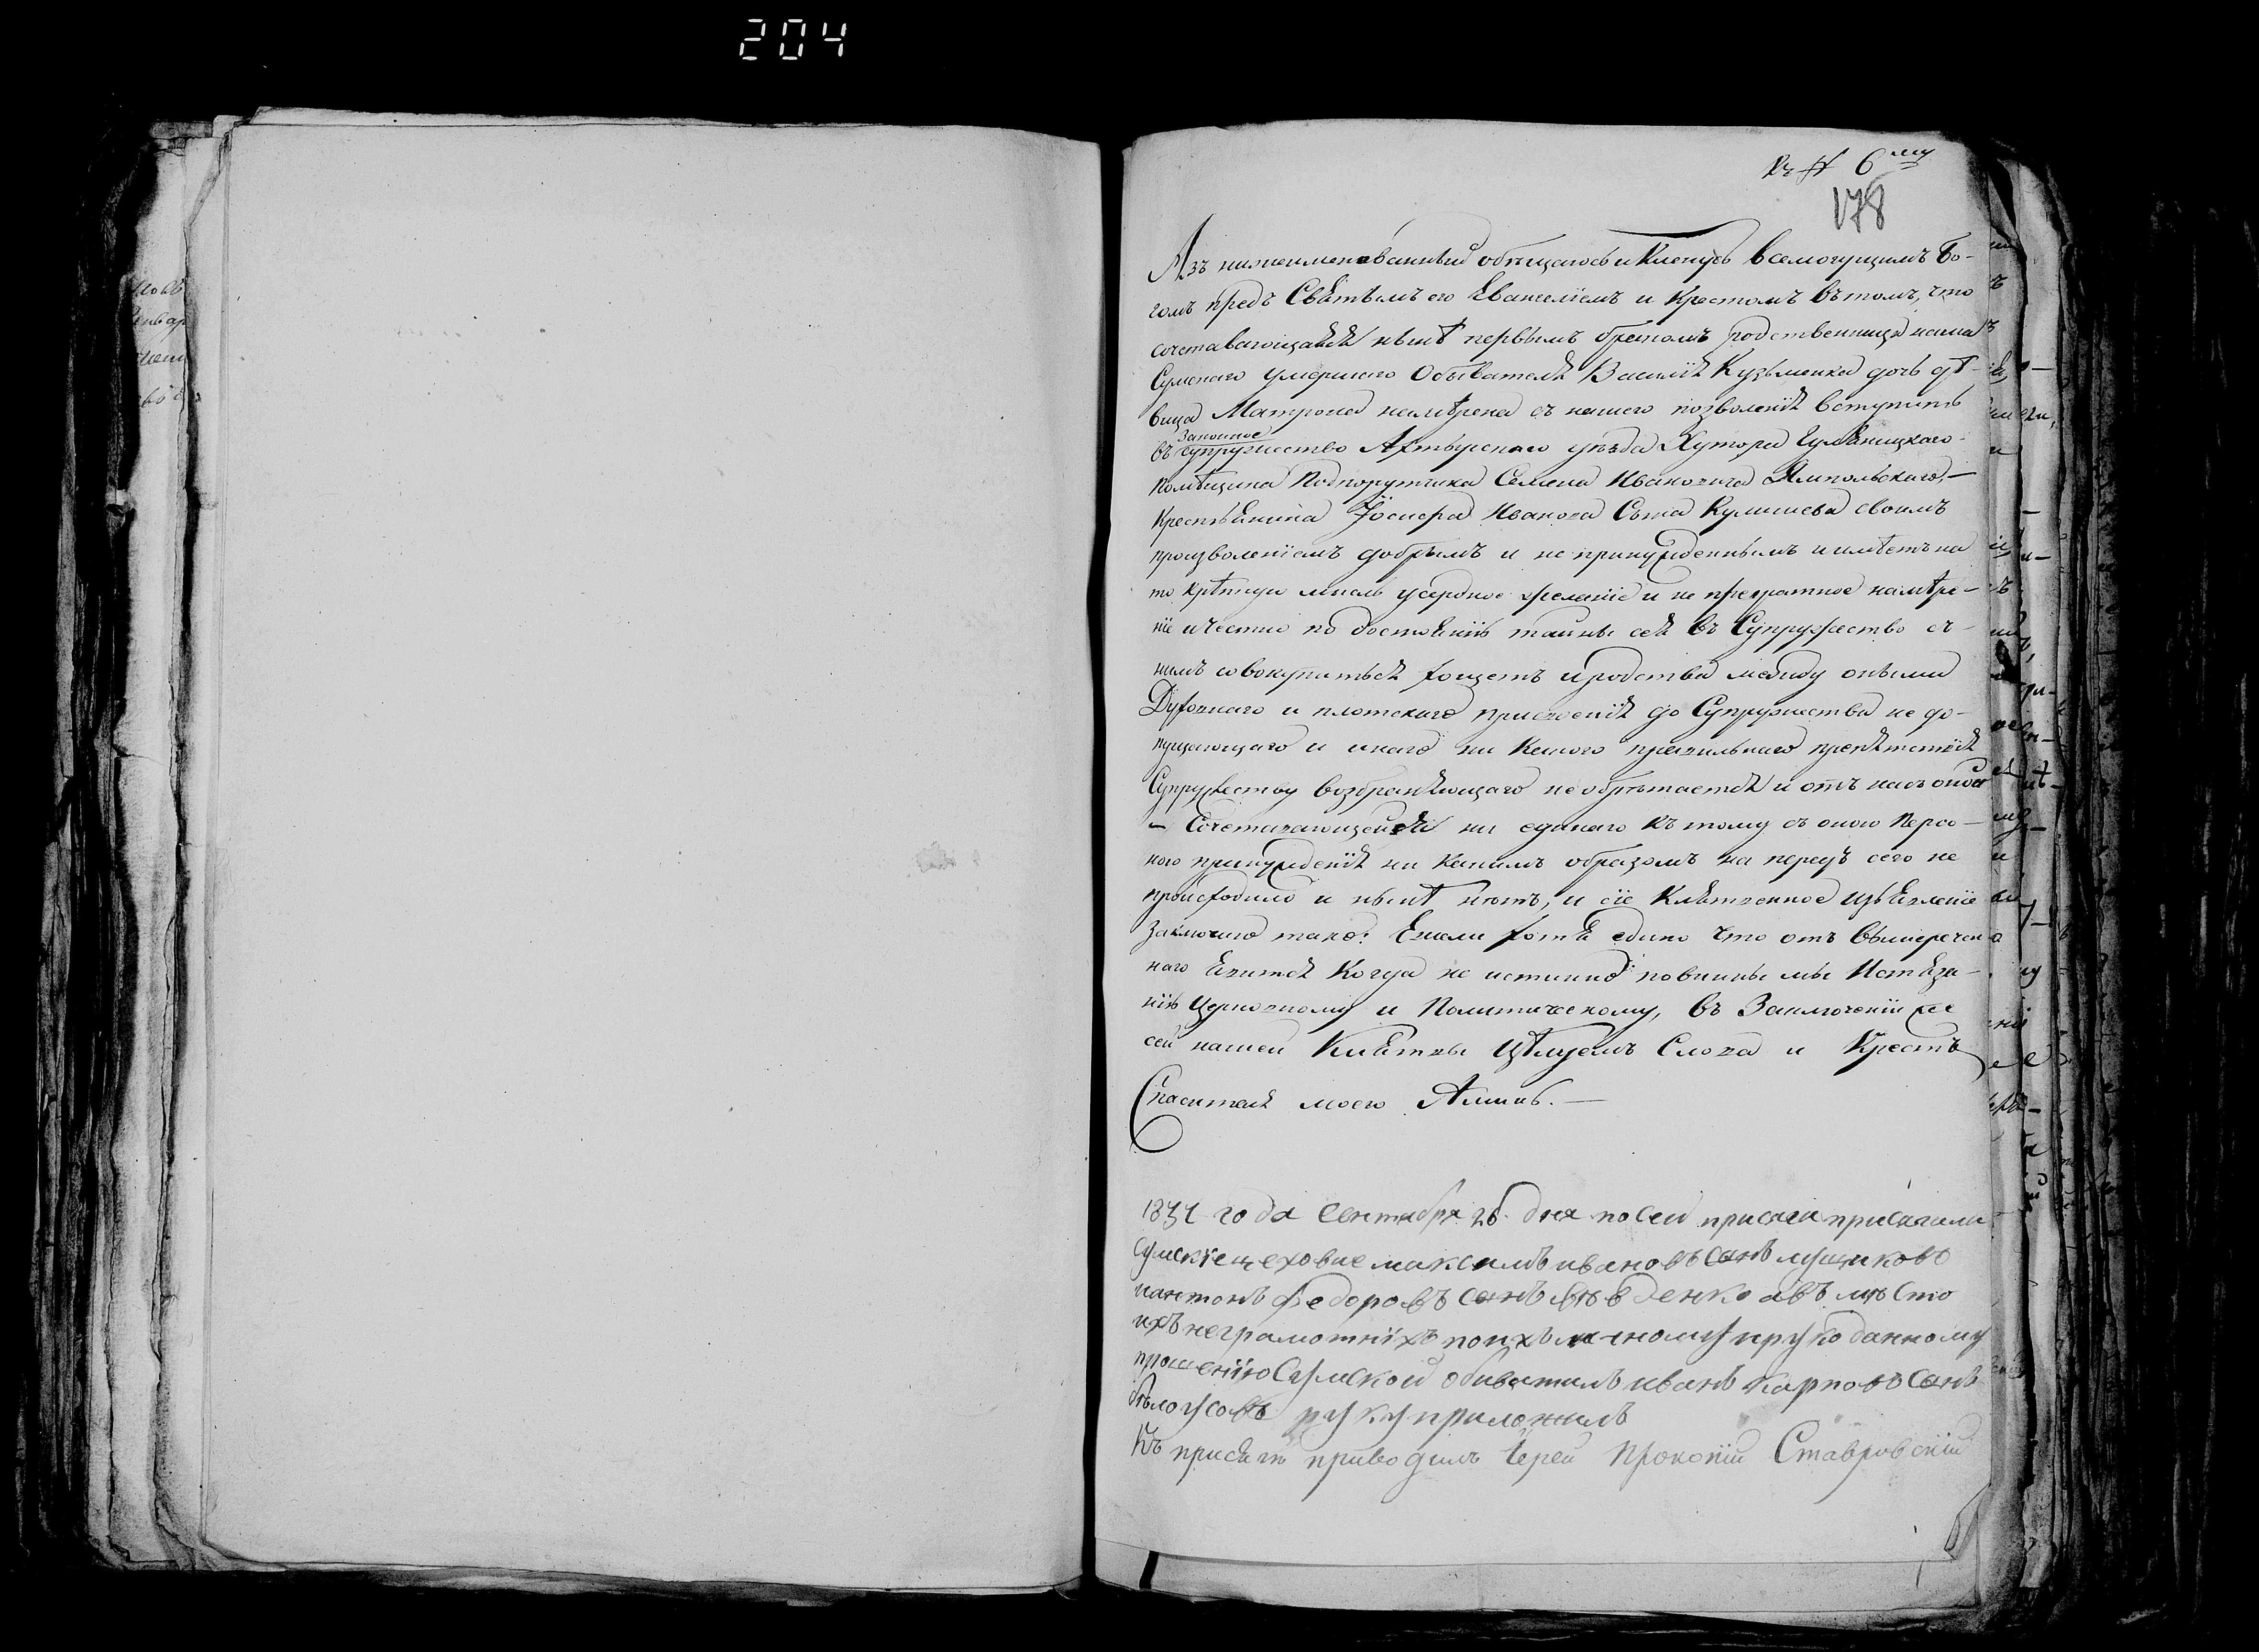 204
Къ № 6му
178
Азъ нижеименованный обѣщаюсь и Кленусь всемогущимъ Бо-
гомъ предъ Святымъ его Евангелїемъ и Крестомъ въ томъ, что
сочетавающаяся нынѣ первымъ бракомъ родственница наша
Сумскаго умершаго Обывателя Василїя Кузьменка дочь дѣ-
вица Матрона намѣрена съ нашего позволенїя вступить
въ Законное супружество Ахтырскаго уѣзда Хутора
Помѣщика Подпорутчика Семена Ивановича Ямпольскаго,
Крестьянина Іосифа Иванова Сына Кулишева своимъ
произволенїемъ добрымъ и не принужденнымъ и имѣетъ на
то крѣпкую мысль усердное желанїе и не превратное намѣре-
нїе и честно по достоянїю тайны сея въ Супружество съ
нимъ совокупиться хощетъ и родства между оными
Духовнаго и плотскаго присвоенїя до Супружества не до-
пущающаго и инаго ни какого правильнаго препятствїя
Супружеству возбраняющаго не обрѣтается и отъ насъ оной
- Сочетавающейся ни единаго къ тому съ оною Персо-
ною принужденїя ни какимъ образомъ на передъ сего не
происходило и нынѣ нѣтъ, и сїе Клятвенное изъявленїе
заключаю тако: Ежели хотя едино что отъ вышеречен
наго Явится Когда не истинно повинны мы Истяза-
нїю Церковному и Политическому, въ Заключенїи же
сей нашей Клятвы Цѣлуемъ Слова и Крестъ
Спасителя моего Аминь.
1831 года сентября 26. дня по сей присяги присягали
сумскїе цеховые максимъ ивановъ сынъ
и антонъ федоровъ сынъ а въ мѣсто
ихъ неграмотнїхъ по ихъ личному и рукоданному
прошенїю Сумской обиватиль иванъ карповъ сынъ
бѣлоусовъ руку приложилъ
Къ присягѣ приводилъ Іерей Прокопїй Ставровскїй